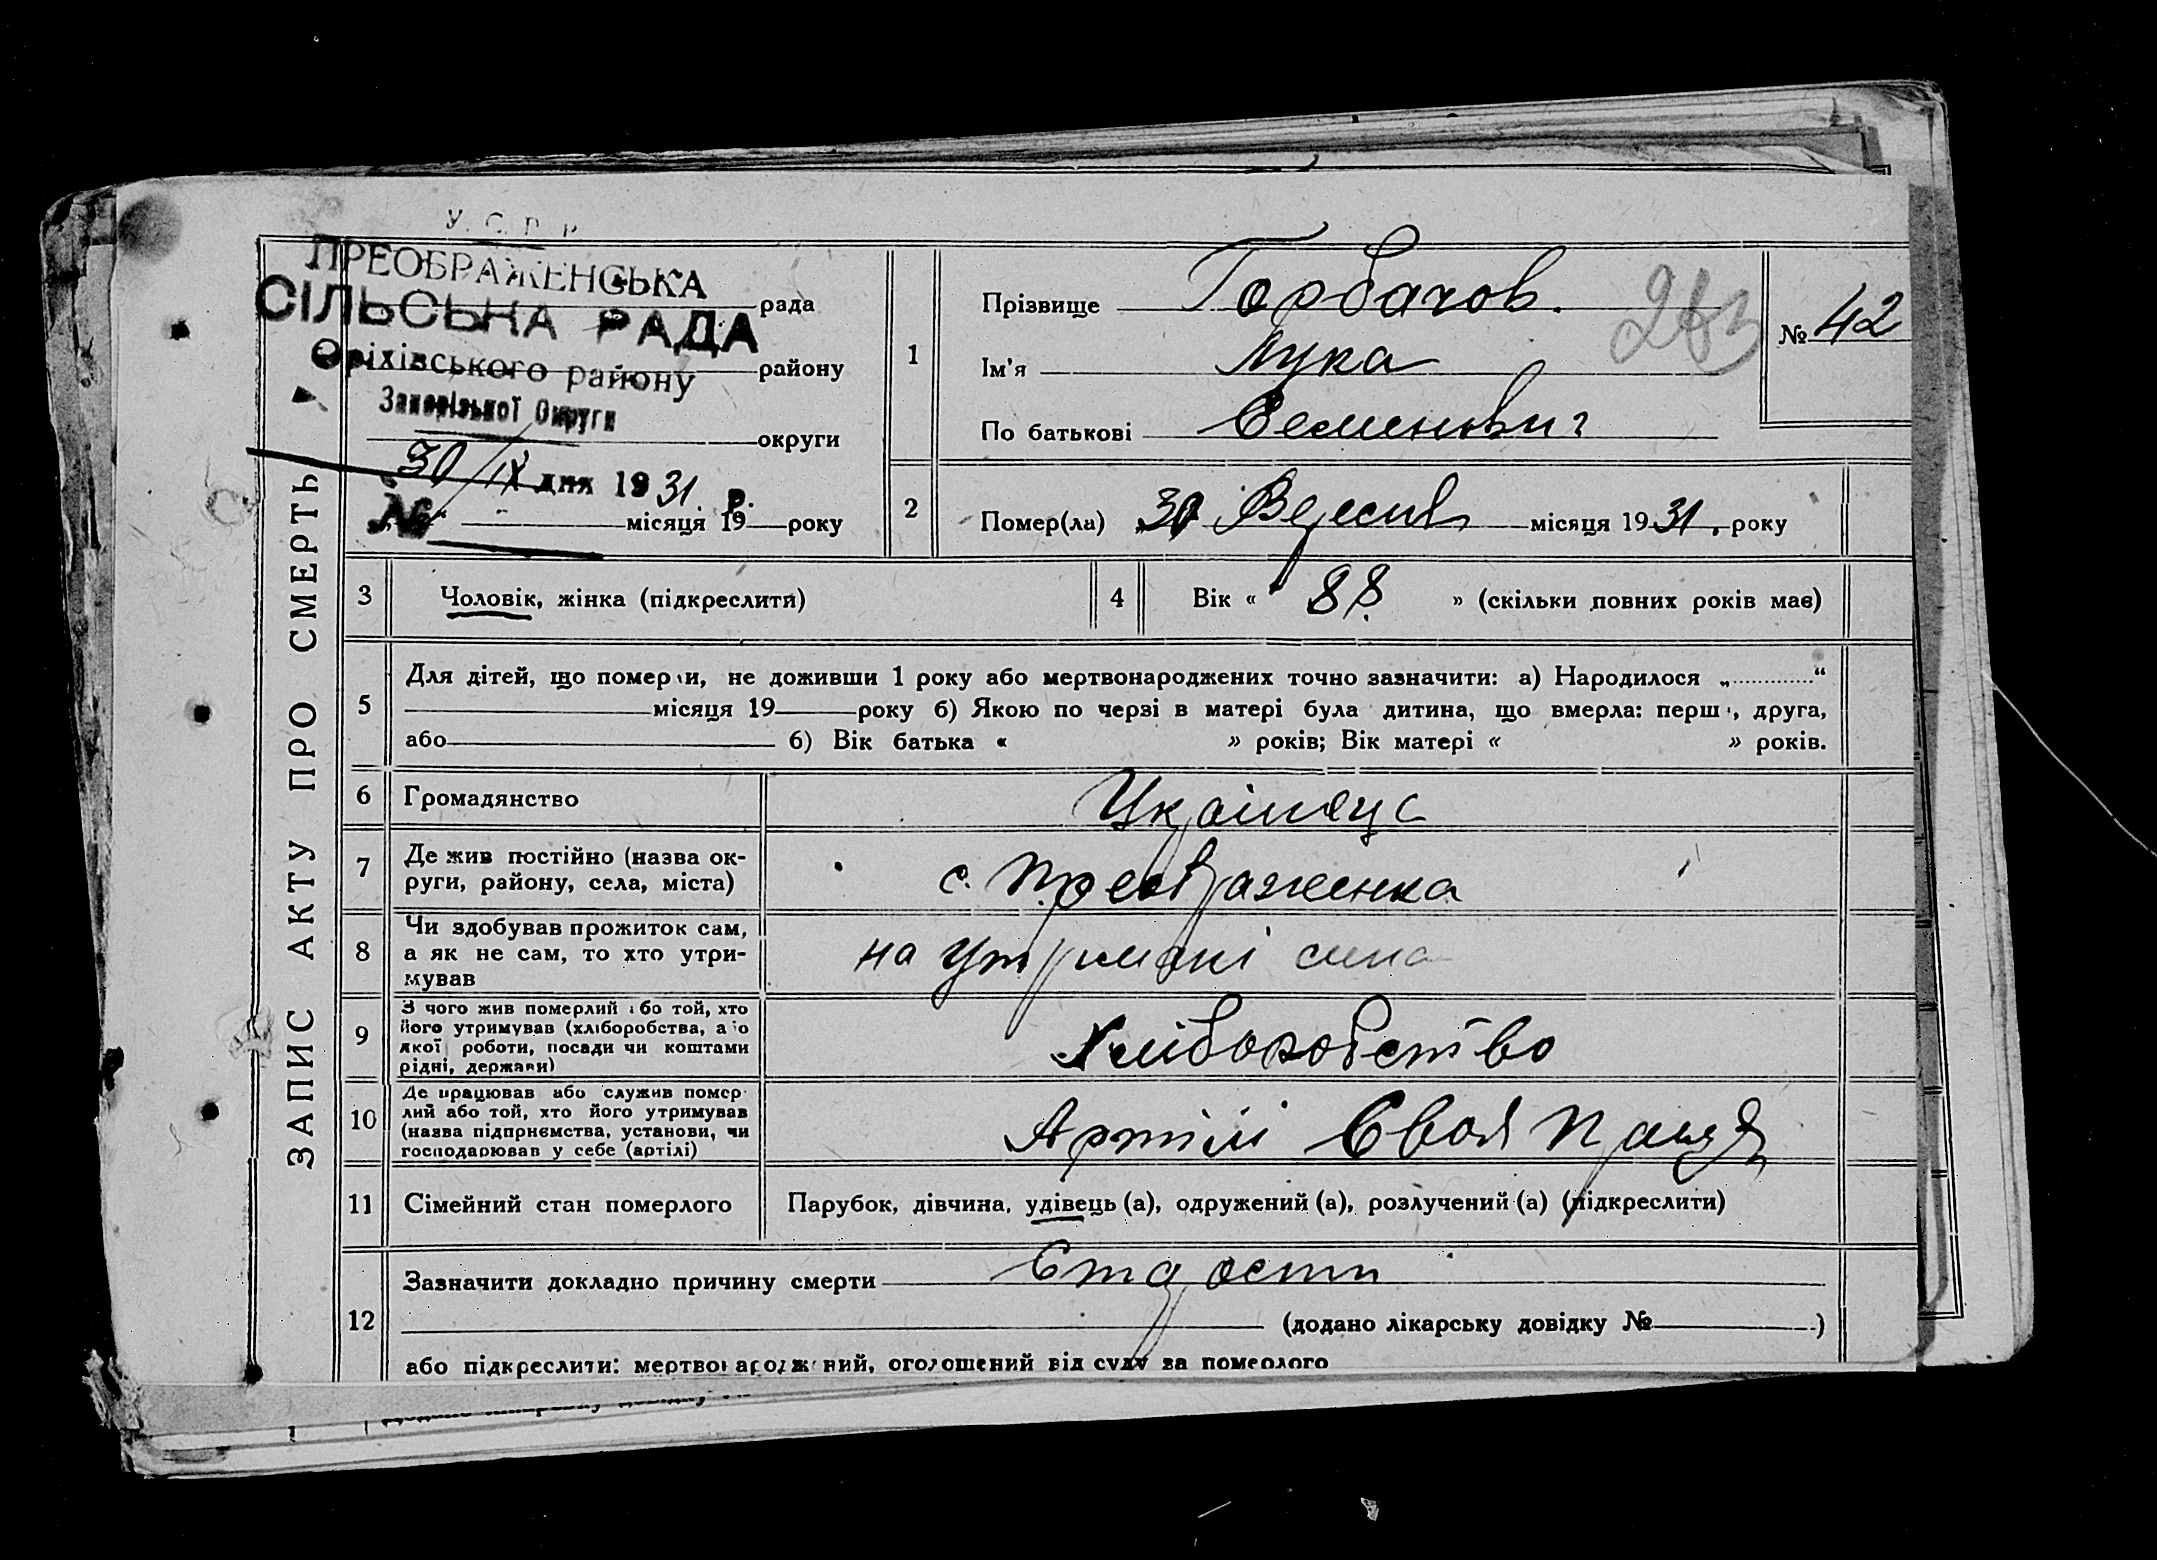 У. С. Р. Р.
ПРЕОБРАЖЕНСЬКА
СІЛЬСЬКА РАДА рада
Оріхівського району району
Запорізької Округи
округи
30/IX дня 1931 р.
№ місяця 19 року
ЗАПИС АКТУ ПРО СМЕРТЬ
1
Прізвище Горбачов.
Ім'я Лука
По батькові Семенович
№ 42
2 Помер(ла) 30 Вересня місяця 1931. року
3 Чоловік, жінка (підкреслити)
4 Вік « 88 » (скільки повних років має)
5 Для дітей, що померли, не доживши 1 року або мертвонароджених точно зазначити: а) Народилося „ “
місяця 19 року б) Якою по черзі в матері була дитина, що вмерла: перша, друга,
або 6) Вік батька « » років; Вік матері « » років.
6 Громадянство Українец
7 Де жив постійно (назва ок-
руги, району, села, міста) с. Преображенка
8 Чи здобував прожиток сам,
а як не сам, то хто утри-
мував на утримані сина
9 З чого жив померлий або той, хто
його утримував (хліборобства, або
якої роботи, посади чи коштами
рідні, держави) Хліборобство
10 Де працював або служив помер-
лий або той, хто його утримував
(назва підприємства, установи, чи
господарював у себе (артілі) Артілі Своя Праця
11 Сімейний стан померлого Парубок, дівчина, удівець (а), одружений (а), розлучений (а) (підкреслити)
12 Зазначити докладно причину смерти Старости
(додано лікарську довідку № )
або підкреслити: мертвонароджений, оголошений від суду за померлого